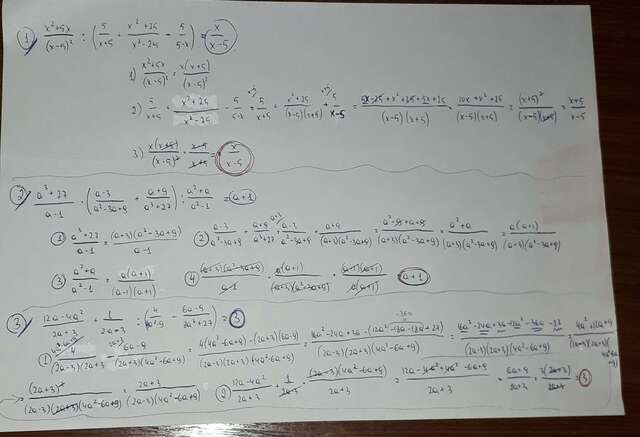 ① (x²+5x)/(x-5)² : (5/(x+5) + (x²+25)/(x²-25) - 5/(5-x)) = x/(x-5)
1) (x²+5x)/(x-5)² = x(x+5)/(x-5)²
2) 5/(x+5) + (x²+25)/(x²-25) - 5/(5-x) = 5/(x+5) + (x²+25)/((x-5)(x+5)) + 5/(x-5) = (5x-25+x²+25+5x+25)/((x-5)(x+5)) = (10x+x²+25)/((x-5)(x+5)) = (x+5)²/((x-5)(x+5)) = (x+5)/(x-5)
3) x(x+5)/(x-5)² · (x-5)/(x+5) = x/(x-5)
② (a³+27)/(a-1) · ((a-3)/(a²-3a+9) + (a+9)/(a³+27)) : (a²+a)/(a²-1) = a+1
① (a³+27)/(a-1) = (a+3)(a²-3a+9)/(a-1) ② (a-3)/(a²-3a+9) + (a+9)/(a³+27) = (a-3)/(a²-3a+9) + (a+9)/((a+3)(a²-3a+9)) = (a²-9+a+9)/((a+3)(a²-3a+9)) = (a²+a)/((a+3)(a²-3a+9)) = a(a+1)/((a+3)(a²-3a+9))
③ (a²+a)/(a²-1) = a(a+1)/((a-1)(a+1)) ④ (a+3)(a²-3a+9)/(a-1) · a(a+1)/((a+3)(a²-3a+9)) · (a-1)(a+1)/(a(a+1)) = a+1
③ (12a-4a²)/(2a+3) + 1/(2a-3) : (4/(4a²-9) - (6a-9)/(8a³+27)) = 3
① 4/((2a-3)(2a+3)) - (6a-9)/((2a+3)(4a²-6a+9)) = (4(4a²-6a+9)-(2a-3)(6a-9))/((2a-3)(2a+3)(4a²-6a+9)) = (16a²-24a+36-(12a²-18a-18a+27))/((2a-3)(2a+3)(4a²-6a+9)) = (4a²+12a+9)/((2a-3)(2a+3)(4a²-6a+9))
(2a+3)²/((2a-3)(2a+3)(4a²-6a+9)) = (2a+3)/((2a-3)(4a²-6a+9)) ② (12a-4a²)/(2a+3) + 1/(2a-3) · (2a-3)(4a²-6a+9)/(2a+3) = (12a-4a²+4a²-6a+9)/(2a+3) = (6a+9)/(2a+3) = 3(2a+3)/(2a+3) = 3